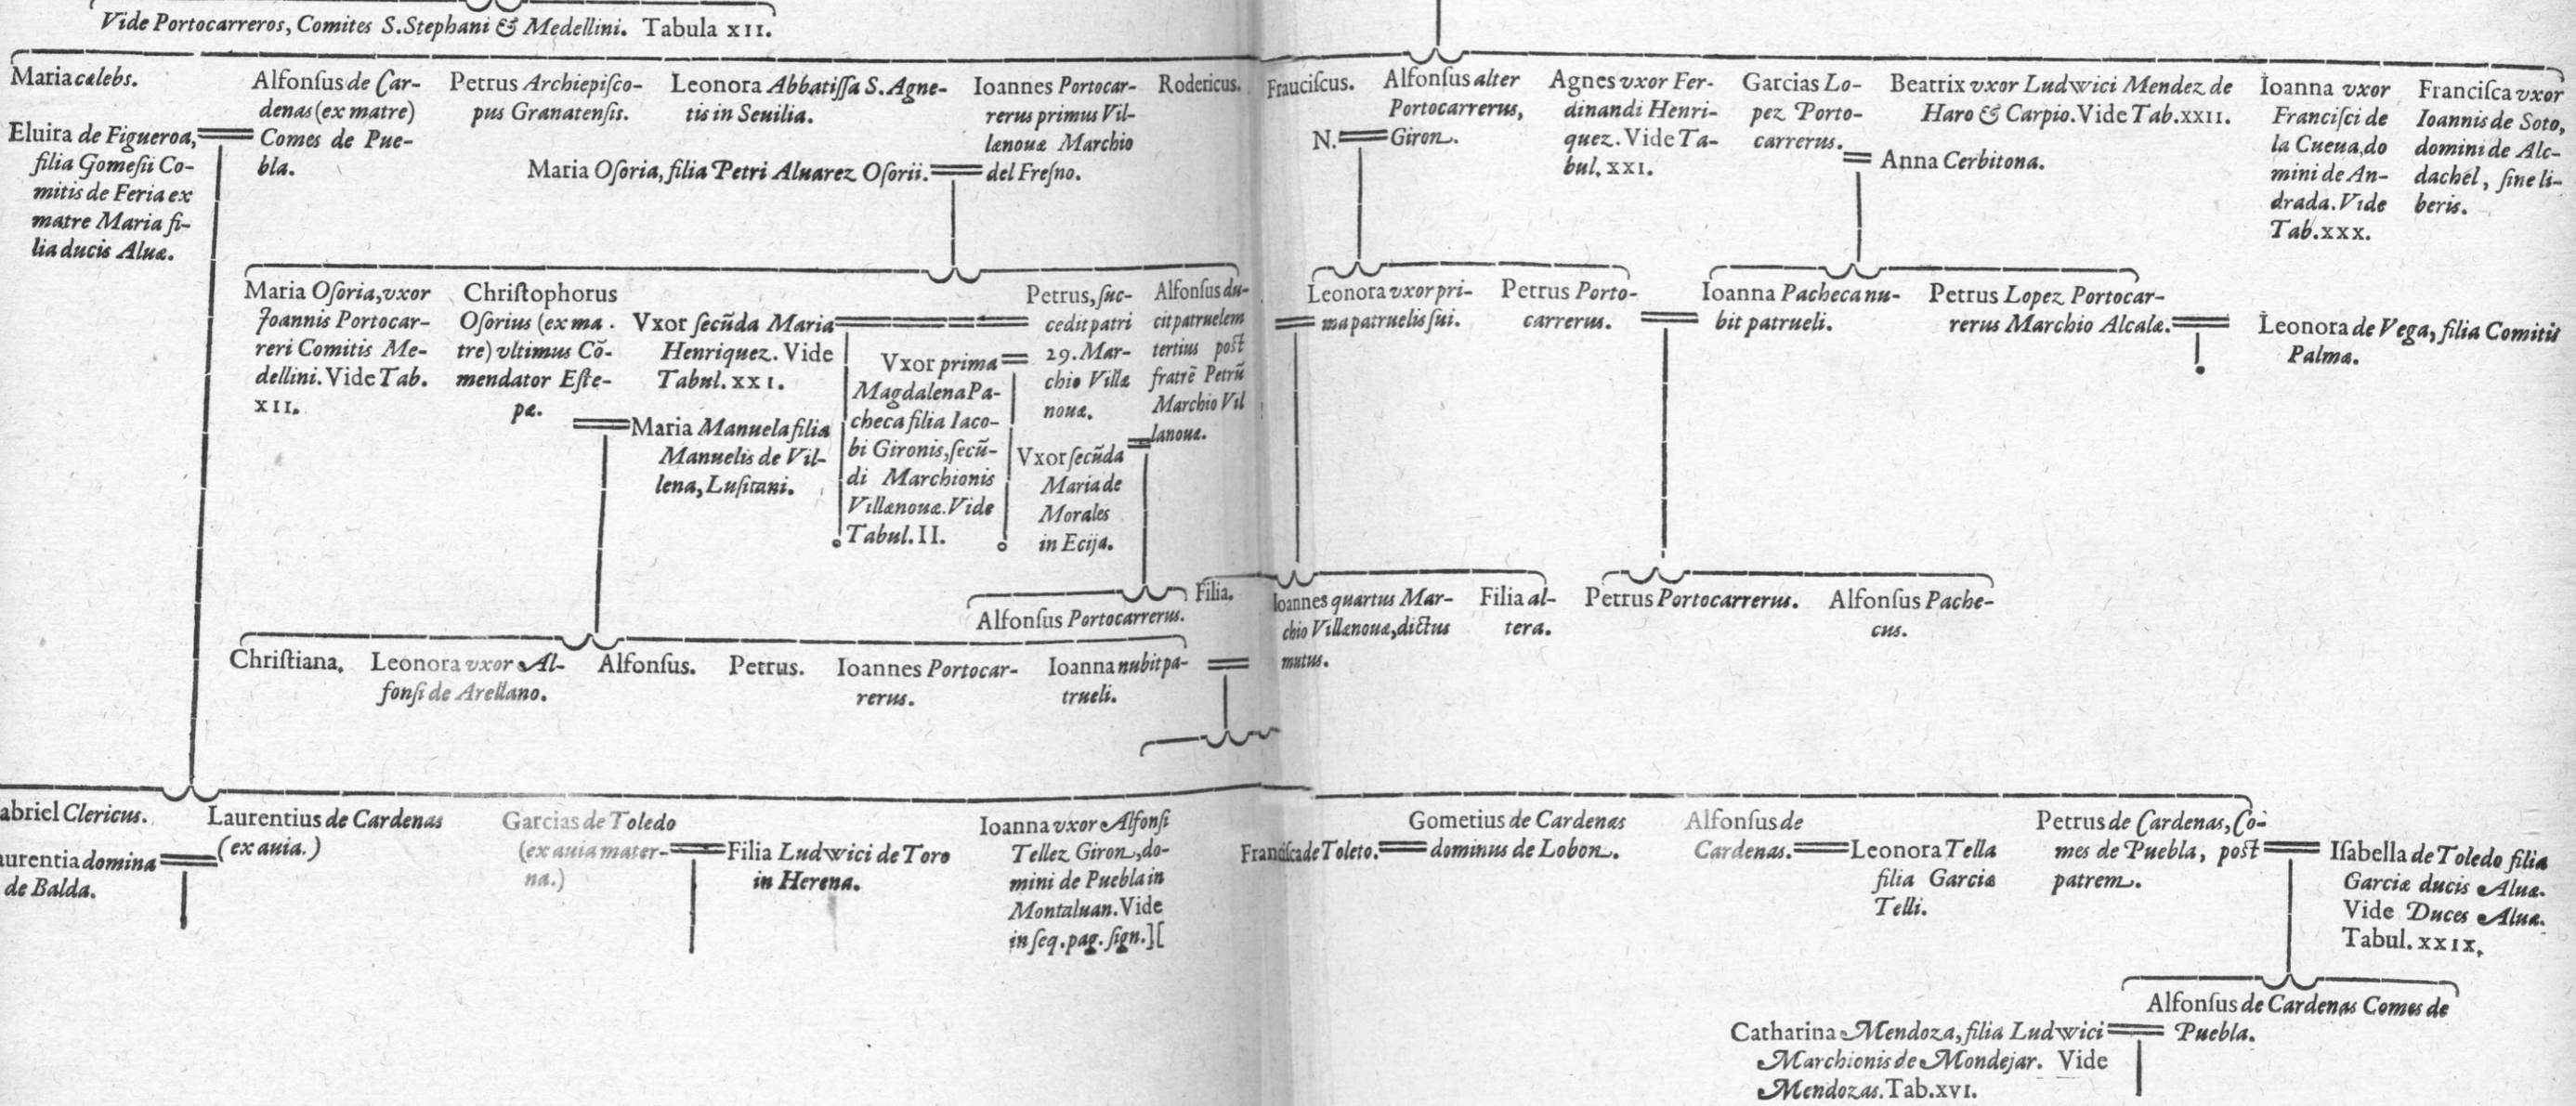 Vide Portocarreros, Comites S. Stephani & Medellini. Tabula XII.
Maria cælebs.
Eluira de Figueroa,
filia Gomesii Co-
mitis de Feria ex
matre Maria fi-
lia ducis Aluæ.
Alfonſus de Car-
denas (ex matre)
Comes de Pue-
bla.
Petrus Archiepiſco-
pus Granatenſis.
Leonora Abbatiſſa S. Agne-
tis in Seuilia.
Ioannes Portocar-
rerus primus Vil-
lænouæ Marchio
del Freſno.
Maria Oſoria, filia Petri Aluarez Oſorii.
Rodericus.
Frauciſcus.
Alfonſus alter
Portocarrerus,
Giron.
N.
Agnes vxor Fer-
dinandi Henri-
quez. Vide Ta-
bul. XXI.
Garcias Lo-
pez Porto-
carrerus.
Beatrix vxor Ludwici Mendez de
Haro & Carpio. Vide Tab. XXII.
Anna Cerbitona.
Ioanna vxor
Franciſci de
la Cueua, do
mini de An-
drada. Vide
Tab. XXX.
Franciſca vxor
Ioannis de Soto,
domini de Alc-
dachel, ſine li-
beris.
Maria Oſoria, vxor
Joannis Portocar-
reri Comitis Me-
dellini. Vide Tab.
XII.
Chriſtophorus
Oſorius (ex ma.
tre) vltimus Cō-
mendator Eſte-
pæ.
Vxor ſecūda Maria
Henriquez. Vide
Tabul. XXI.
Maria Manuela filia
Manuelis de Vil-
lena, Luſitani.
Vxor prima
Magdalena Pa-
checa filia Iaco-
bi Gironis, ſecū-
di Marchionis
Villænouæ. Vide
Tabul. II.
Petrus, ſuc-
cedit patri
29. Mar-
chio Villæ
nouæ.
Vxor ſecūda
Maria de
Morales
in Ecija.
Alfonſus du-
cit patruelem
tertius poſt
fratrē Petrū
Marchio Vil
lanouæ.
Leonora vxor pri-
ma patruelis ſui.
Petrus Porto-
carrerus.
Ioanna Pacheca nu-
bit patrueli.
Petrus Lopez Portocar-
rerus Marchio Alcalæ.
Leonora de Vega, filia Comitis
Palmæ.
Alfonſus Portocarrerus.
Filia.
Ioannes quartus Mar-
chio Villænouæ, dictus
mutus.
Filia al-
tera.
Petrus Portocarrerus.
Alfonſus Pache-
cus.
Chriſtiana.
Leonora vxor Al-
fonſi de Arellano.
Alfonſus.
Petrus.
Ioannes Portocar-
rerus.
Ioanna nubit pa-
trueli.
abriel Clericus.
aurentia domina
de Balda.
Laurentius de Cardenas
(ex auia.)
Garcias de Toledo
(ex auia mater-
na.)
Filia Ludwici de Toro
in Herena.
Ioanna vxor Alfonſi
Tellez Giron, do-
mini de Puebla in
Montaluan. Vide
in ſeq. pag. ſign. ][
Franciſca de Toleto.
Gometius de Cardenas
dominus de Lobon.
Alfonſus de
Cardenas.
Leonora Tella
filia Garciæ
Telli.
Petrus de Cardenas, Co-
mes de Puebla, poſt
patrem.
Iſabella de Toledo filia
Garciæ ducis Aluæ.
Vide Duces Aluæ.
Tabul. XXIX.
Alfonſus de Cardenas Comes de
Puebla.
Catharina Mendoza, filia Ludwici
Marchionis de Mondejar. Vide
Mendozas. Tab. XVI.